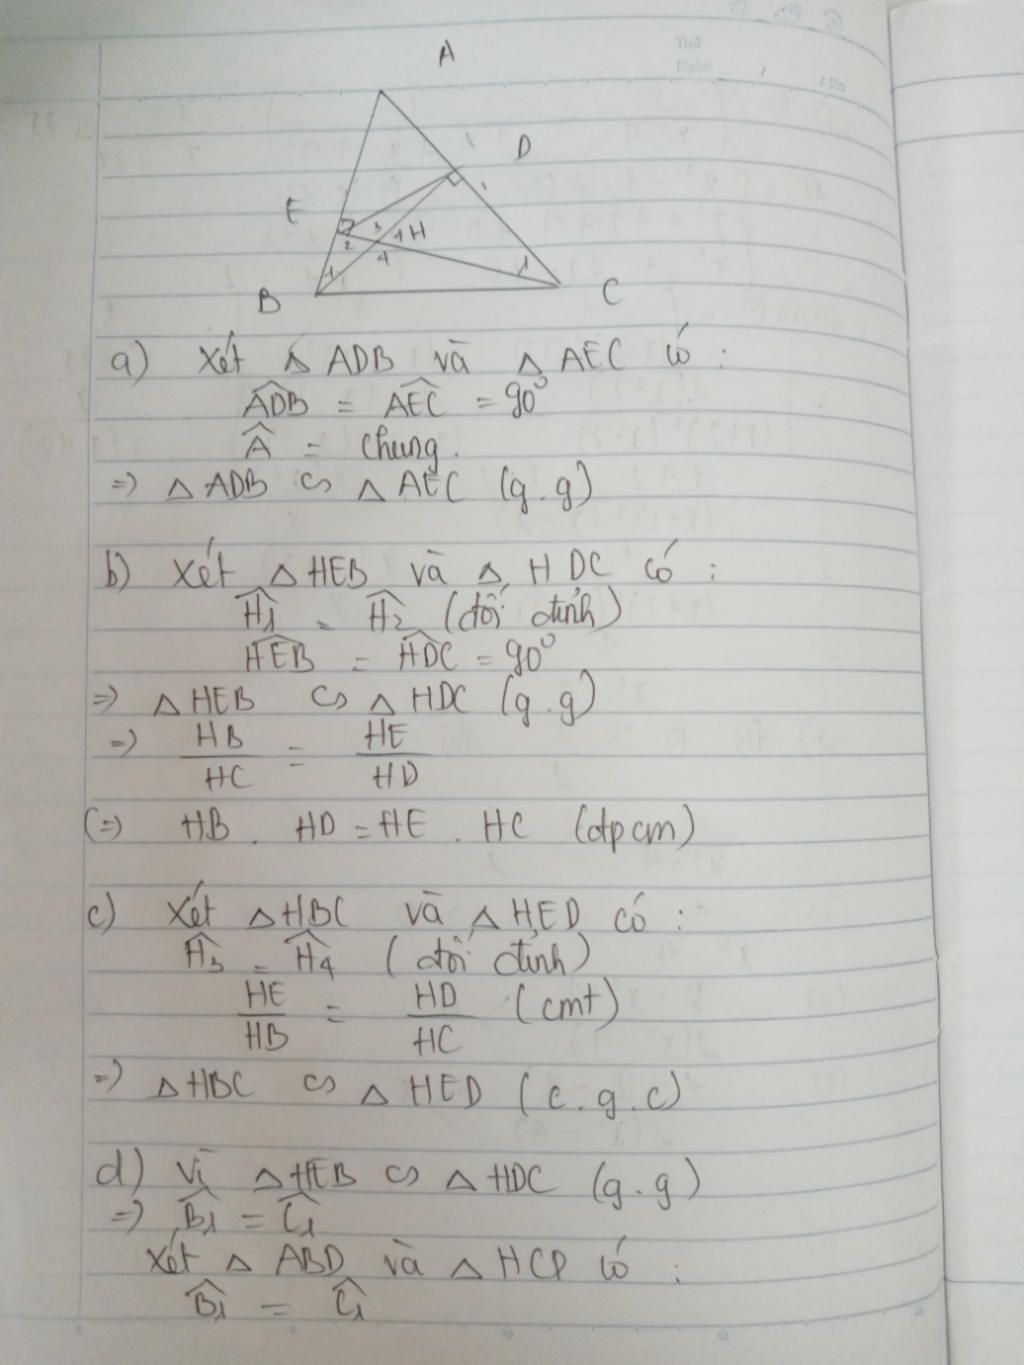 Thứ
Ngày
No
A
D
E
3
1 H
2
4
1
1
B
C
a) Xét △ ADB và △ AEC có :
ADB = AEC = 90°
A = chung.
=> △ ADB ∽ △ AEC (g.g)
b) Xét △ HEB và △ HDC có :
H1 = H2 (đối đỉnh)
HEB = HDC = 90°
=> △ HEB ∽ △ HDC (g.g)
=> HB/HC = HE/HD
(=) HB . HD = HE . HC (đpcm)
c) Xét △HBC và △ HED có :
H3 = H4 (đối đỉnh)
HE/HB = HD/HC (cmt)
=> △HBC ∽ △ HED (c.g.c)
d) Vì △HEB ∽ △ HDC (g.g)
=> B1 = C1
Xét △ ABD và △ HCD có :
B1 = C1